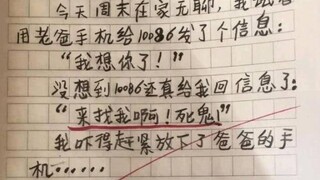 今天周末在家无聊，我试着
用老爸手机给10086发了个信息：
“我想你了！”
没想到10086还真给我回信息了：
“来找我啊！死鬼！”
我吓得赶紧放下了爸爸的手
机……